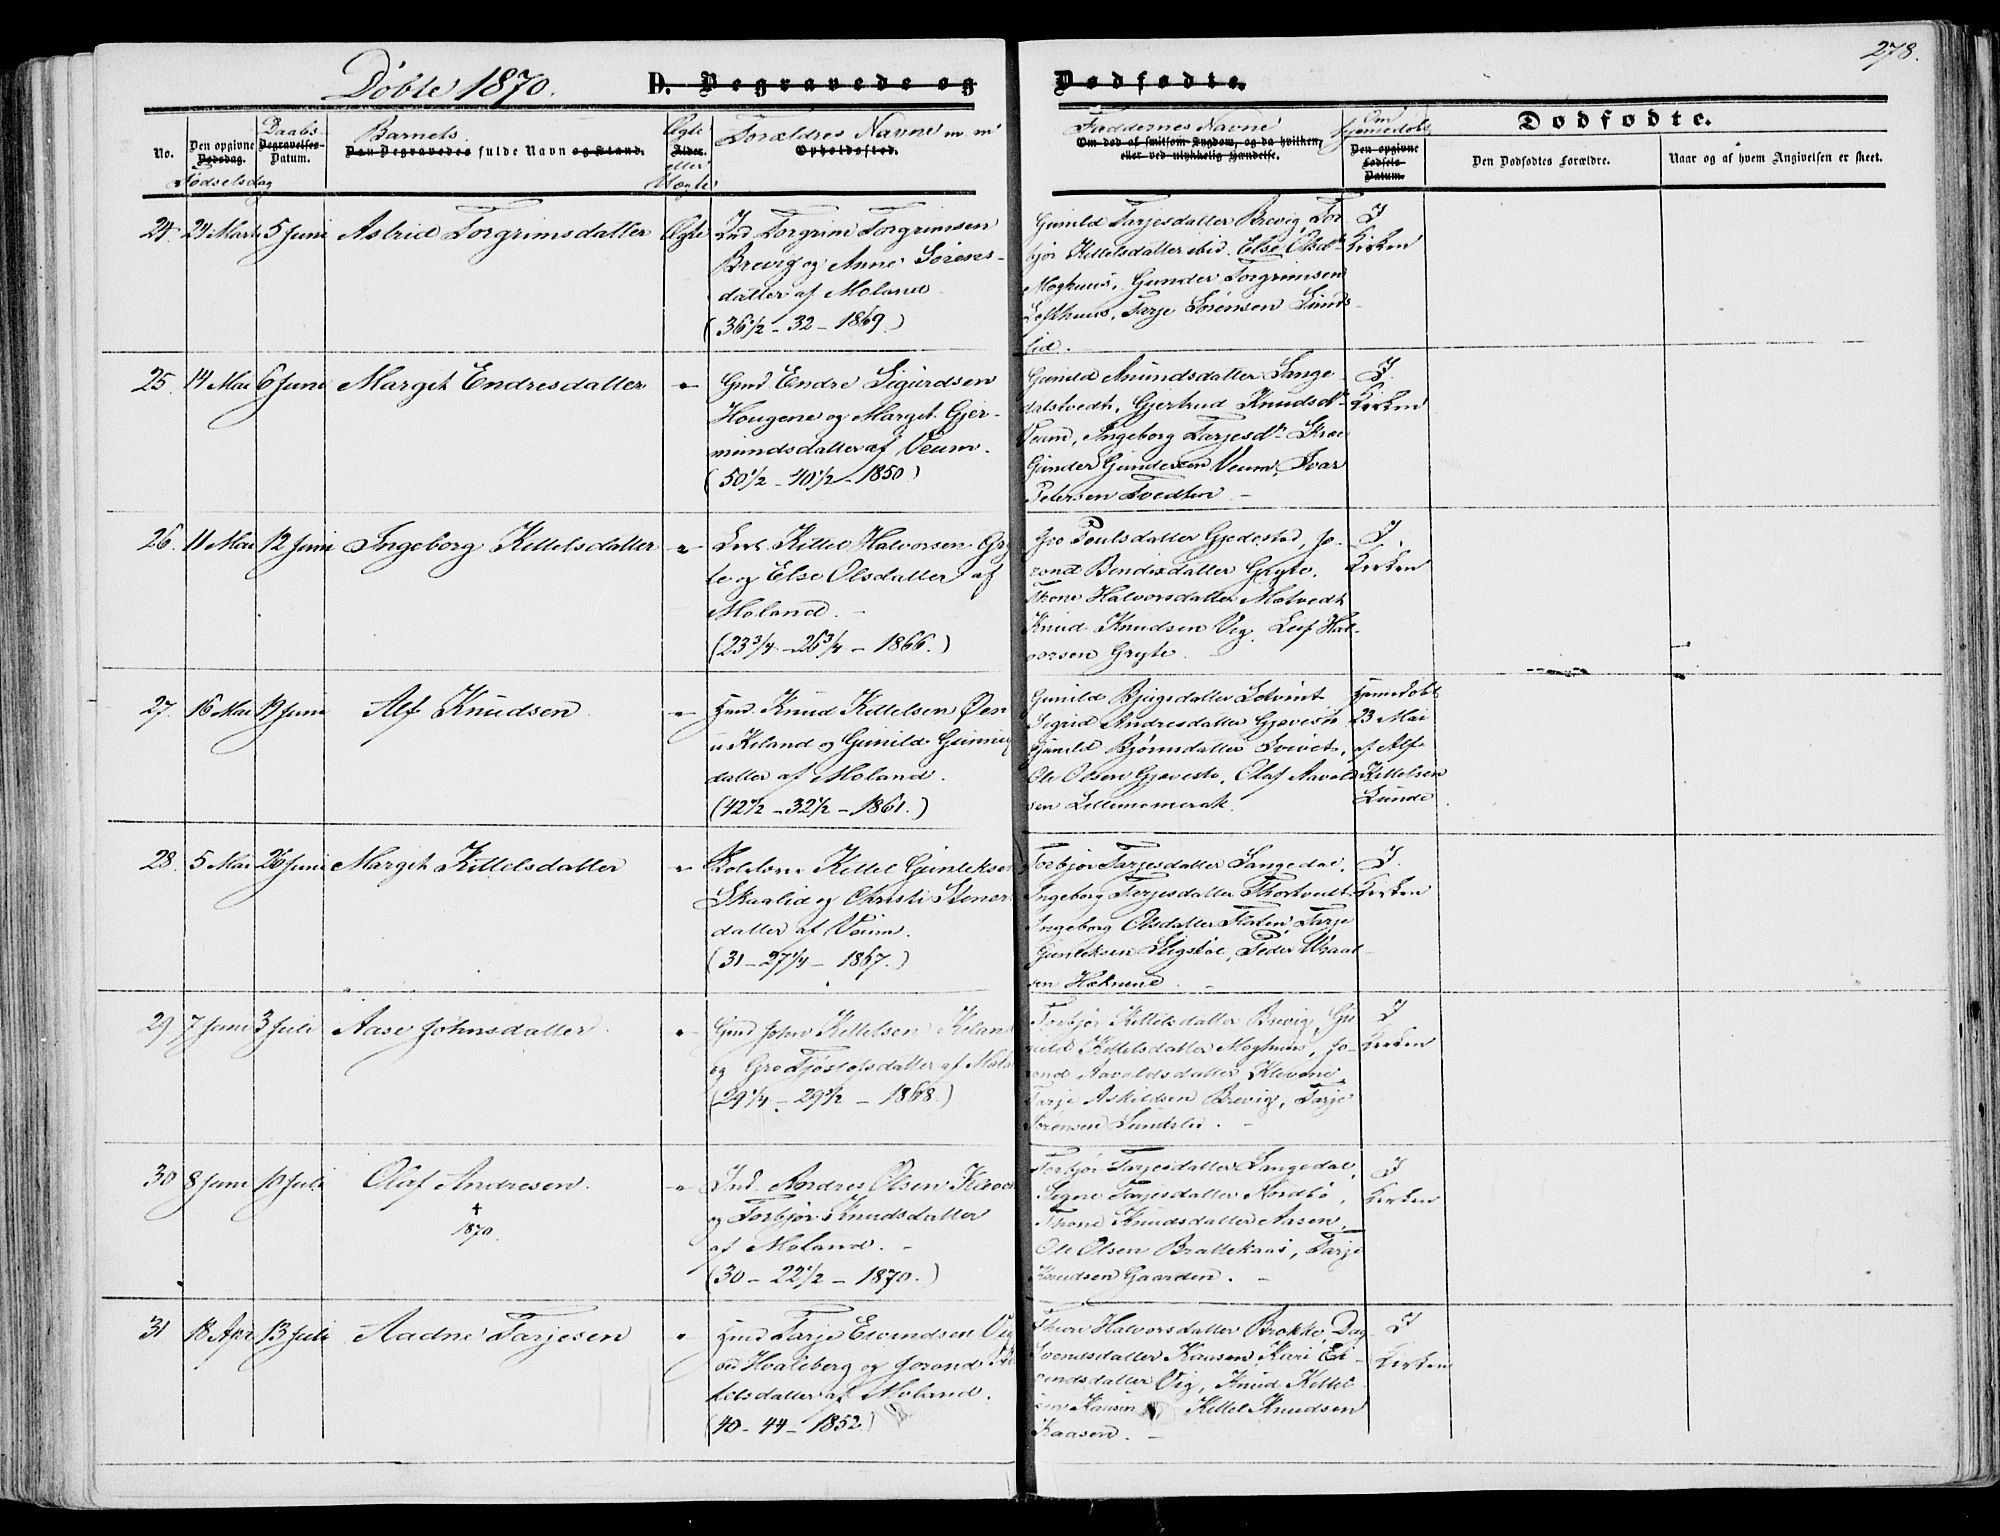 278.
Døbte 1870.
D. Begravede og
Dødfødte.
No.
Den opgivne
Dødsdag.
Fødselsdag
Daabs-
Begravelses-
Datum.
Barnets
Den Begravedes fulde Navn og Stand.
Ægte
Alder.
eller
Uægte
Forældres Navne m. m.
Opholdssted.
Faddernes Navne
Om død af smitsom Sygdom, og da hvilken,
eller ved ulykkelig Hændelse.
Om
hjemmedøbt
Den opgivne
Fødsels
Datum.
Dødfødte.
Den Dødfødtes Forældre.
Naar og af hvem Angivelsen er skeet.
24. 24 Marts 5 Juni Astrid Torgrimsdatter Ægte
Ind. Torgrim Torgrimsen
Brevig og Anne Sörens-
datter af Moland
(36 1/2 - 32 - 1869.)
Gunild Tarjesdatter Brevig, Tor-
bjør Kittelsdatter ibid. Else Olsdr
Moghuus, Gunder Torgrimsen
Lofthuus, Tarje Sørensen Sunds-
lid.
I
Kirken
25. 14 Mai 6 Juni Margit Endresdatter "
Gmd Endre Sigurdsen
Hougene og Margit Gjer-
mundsdatter af Veum.
(50 1/2 - 40 1/2 - 1850)
Gunild Aanundsdatter Lange-
dalstvedt, Gjertrud Knudsdr
Veum, Ingeborg Tarjesdr
Gunder Gundersen Veum, Ivar
Petersen Tvedten -
I.
Kirken
26. 11 Mai 12 Juni Ingeborg Kittelsdatter "
Kittel Halvorsen Gry-
te og Else Olsdatter af
Moland. -
(23 3/4 - 26 3/4 - 1866.)
Gro Poulsdatter Gjedestad, Jo-
rond Bendixdatter Gryte,
Thone Halvorsdatter Motvedt
Knud Knudsen Vig, Leif Hal-
vorsen Gryte.
I.
Kirken
27. 16 Mai 19 Juni Alf Knudsen. "
Hmd. Knud Kittelsen Øen
u. Kiland og Gunild
datter af Moland.
(42 1/2 - 32 1/2 - 1861.)
Gunild
Sigrid Andresdatter Gjøvestø
Gunild Bjørnsdatter
Ole Olsen Gjøvestø, Olaf Aavold-
sen
Hjemmedøbt
23 Mai
af Alf
Kittelsen
Lunde.
28. 5 Mai 26 Juni Margit Kittelsdatter "
Kittel Gunleksen
Skaalid og Christi Stener-
datter af Veum.
(31 - 27 1/4 - 1867.)
Torbjør Tarjesdatter Langedal,
Ingeborg Tarjesdatter Thortvedt
Ingeborg Olsdatter Flaten, Tarje
Gunleksen Stigstøl, Peder
sen
I.
Kirken
29 7 Juni 3 Juli Aase Johnsdatter. "
Gmd John Kittelsen Kiland
og Gro Tjøstofsdatter af Mola
(29 1/4 - 29 1/2 - 1868.)
Torbjør Kittelsdatter Brevig, Gu-
nild Kittelsdatter Moghuus, Jo-
rond Aavoldsdatter Klevene,
Tarje Askildsen Brevig, Tarje
Sørensen Sundslid. -
I
Kirken
30 8 Juni 10 Juli Olaf Andresen. "
+
1870.
Ind. Andres Olsen
og Torbjør Knudsdatter
af Moland. -
(30 - 22 1/2 - 1870.)
Torbjør Tarjesdatter Langedal,
Signe Tarjesdatter Nordbø,
Thone Knudsdatter Aasen,
Ole Olsen Brattekaas, Tarje
Knudsen Gaarden. -
I
Kirken
31 18 Apr. 13 Juli Aadne Tarjesen "
Hmd Tarje Evindsen Vig
ved Hvaleberg og Jorond Kit-
telsdatter af Moland.
(40 - 44 - 1852)
Halvorsdatter Brokke, Dag
Svendsdatter Kaasen, Kari Ei-
vindsdatter Vig, Knud Kittel-
sen Kaasen, Kittel Knudsen
Kaasen. -
I
Kirken